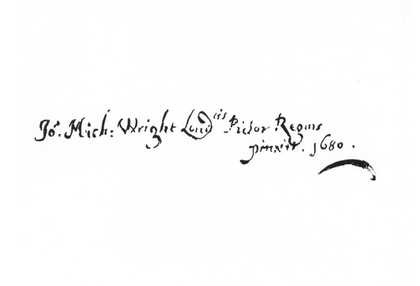 Jos. Mich: Wright Londiis Pictor Regius
pinxit. 1680.